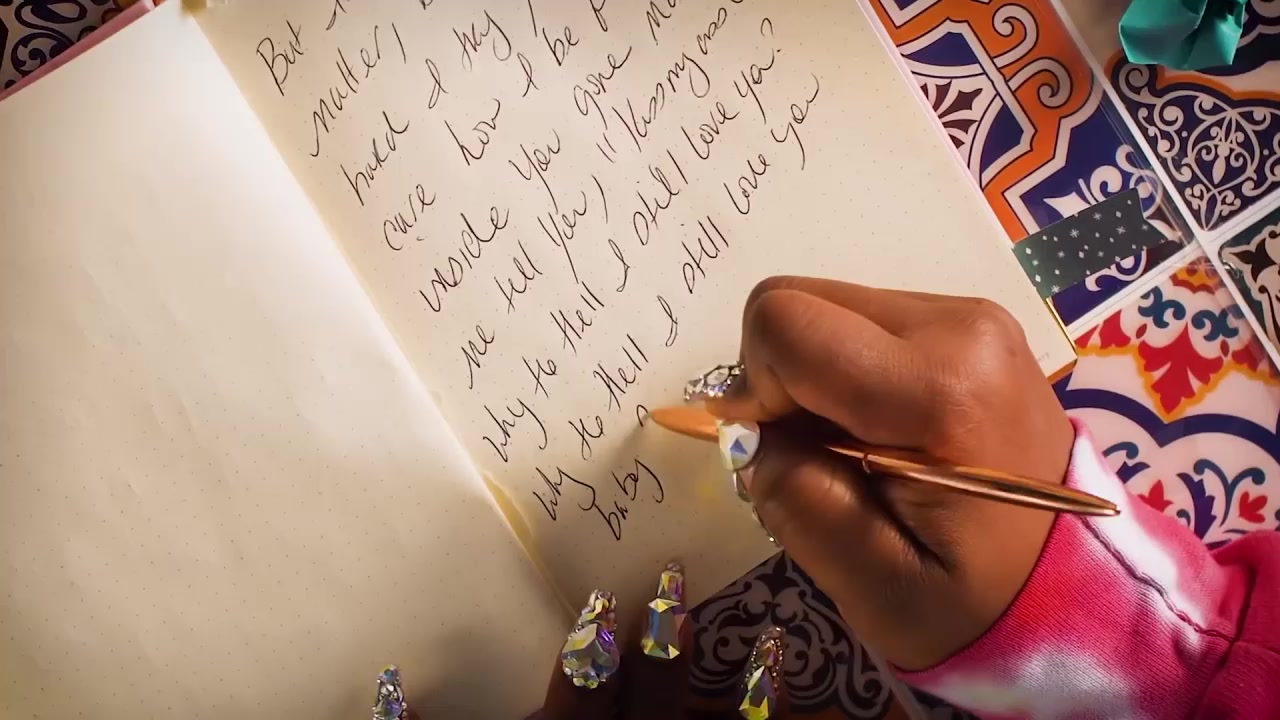 But
matter,
hard I try,
care how I be
inside you gone
me tell you, "kiss my ass
Why the Hell I still love you?
Why the Hell I still love you
baby